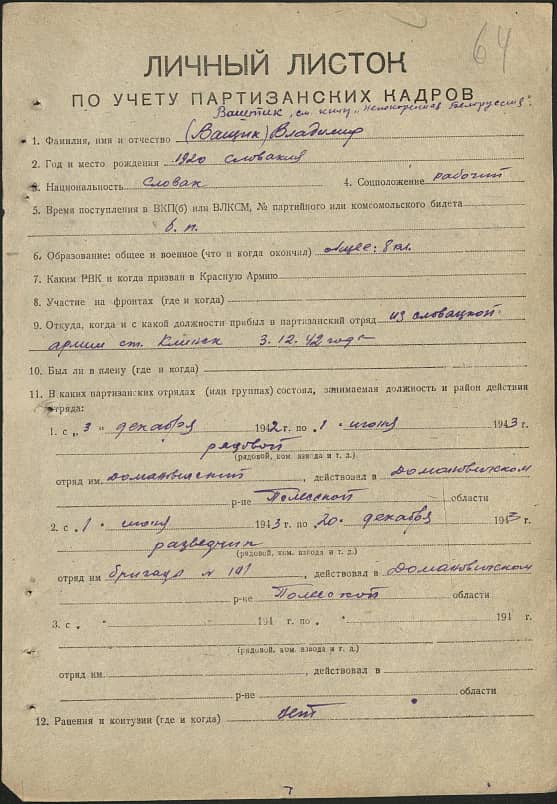 64
ЛИЧНЫЙ ЛИСТОК
ПО УЧЕТУ ПАРТИЗАНСКИХ КАДРОВ
Ваштик, см. книгу "Непокоренная Белоруссия".
1. Фамилия, имя и отчество (Ващик) Владимир
2. Год и место рождения 1920 словакия
3. Национальность Словак 4. Соцположение рабочий
5. Время поступления в ВКП(б) или ВЛКСМ, № партийного или комсомольского билета
б. п.
6. Образование: общее и военное (что и когда окончил) общее: 8 кл.
7. Каким РВК и когда призван в Красную Армию
8. Участие на фронтах (где и когда)
9. Откуда, когда и с какой должности прибыл в партизанский отряд из словацкой
армии ст. Клинск 3.12.42 года
10. Был ли в плену (где и когда)
11. В каких партизанских отрядах (или группах) состоял, занимаемая должность и район действия
отряда:
1. с „3" декабря 1942 г. по „1" июня 1943 г.
рядовой
(рядовой, ком. взвода и т. д.)
отряд им. Домановичский, действовал в Домановичском
р-не Полесской области
2. с „1" июня 1943 г. по „20" декабря 1943 г.
разведчик
(рядовой, ком. взвода и т. д.)
отряд им бригада № 101, действовал в Домановичском
р-не Полесской области
3. с „ " 194 г. по „ " 194 г.
(рядовой, ком. взвода и т. д.)
отряд им., действовал в
р-не области
12. Ранения и контузии (где и когда) нет